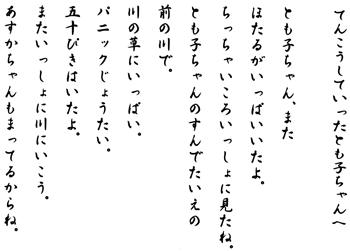 てんこうしていったとも子ちゃんへ
とも子ちゃん、また
ほたるがいっぱいいたよ。
ちっちゃいころいっしょに見たね。
とも子ちゃんのすんでたいえの
前の川で。
川の草にいっぱい。
パニックじょうたい。
五十ぴきはいたよ。
またいっしょに川にいこう。
あすかちゃんもまってるからね。